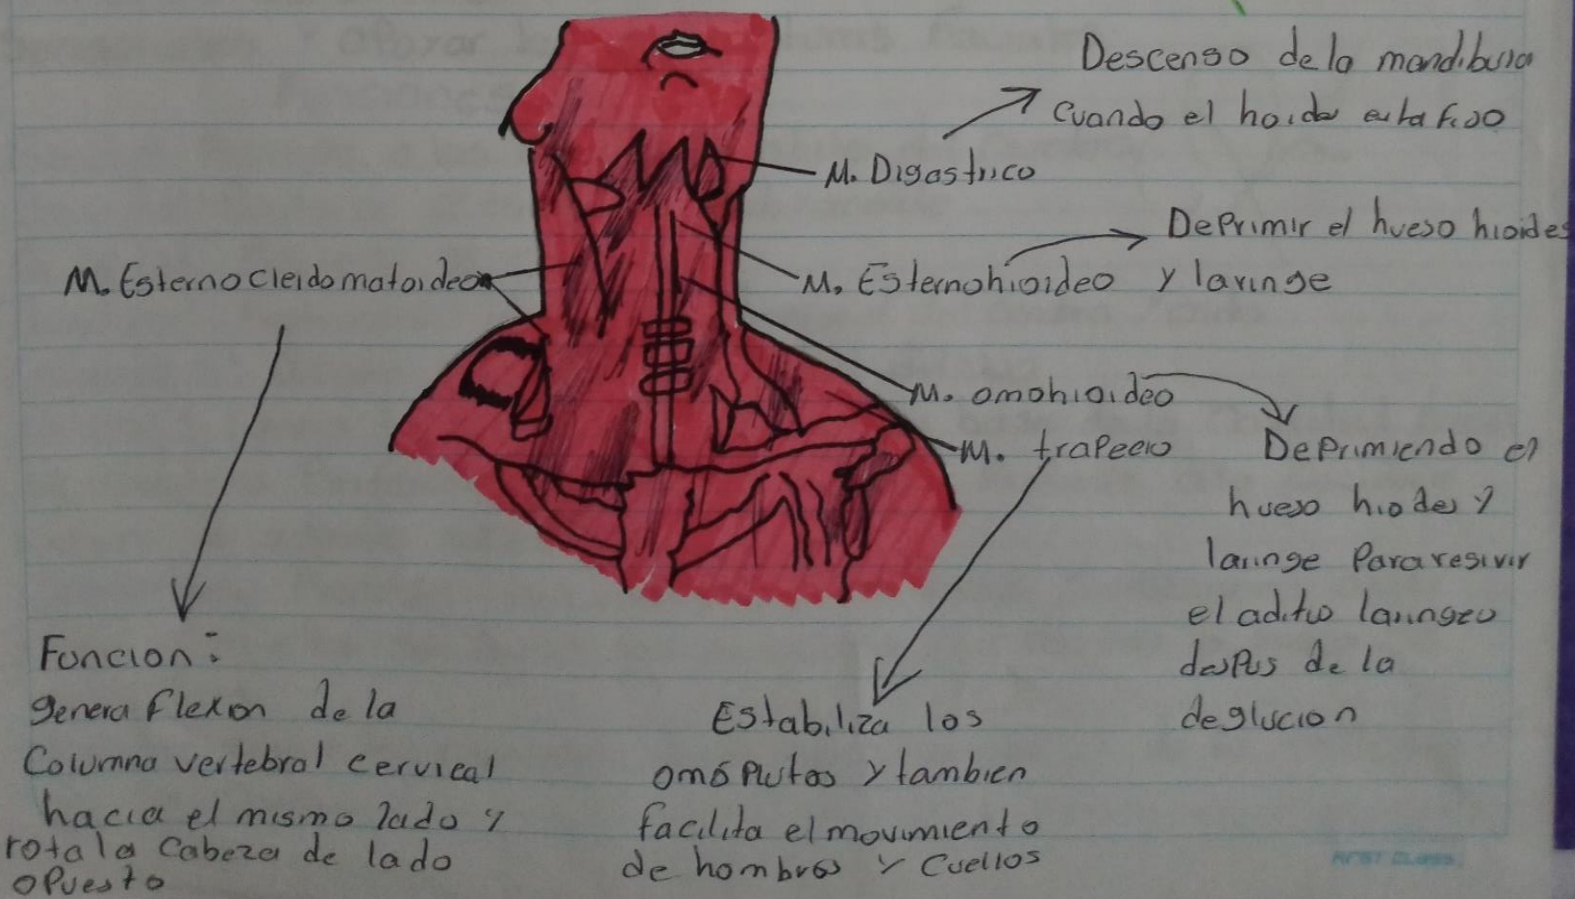 Descenso de la mandibula
cuando el hoide esta fijo
M. Digastrico
Deprimir el hueso hioides
y laringe
M. Esternohioideo
M. Esternocleidomatoideo
M. omohioideo
M. trapecio
Deprimiendo el
hueso hiodes y
laringe Para resivir
el aditio laringeo
despus de la
deglucion
Funcion:
genera flexion de la
Columna vertebral cervical
hacia el mismo lado y
rota la cabeza de lado
opuesto
Estabiliza los
omóplutos y tambien
facilita el movimiento
de hombros y cuellos